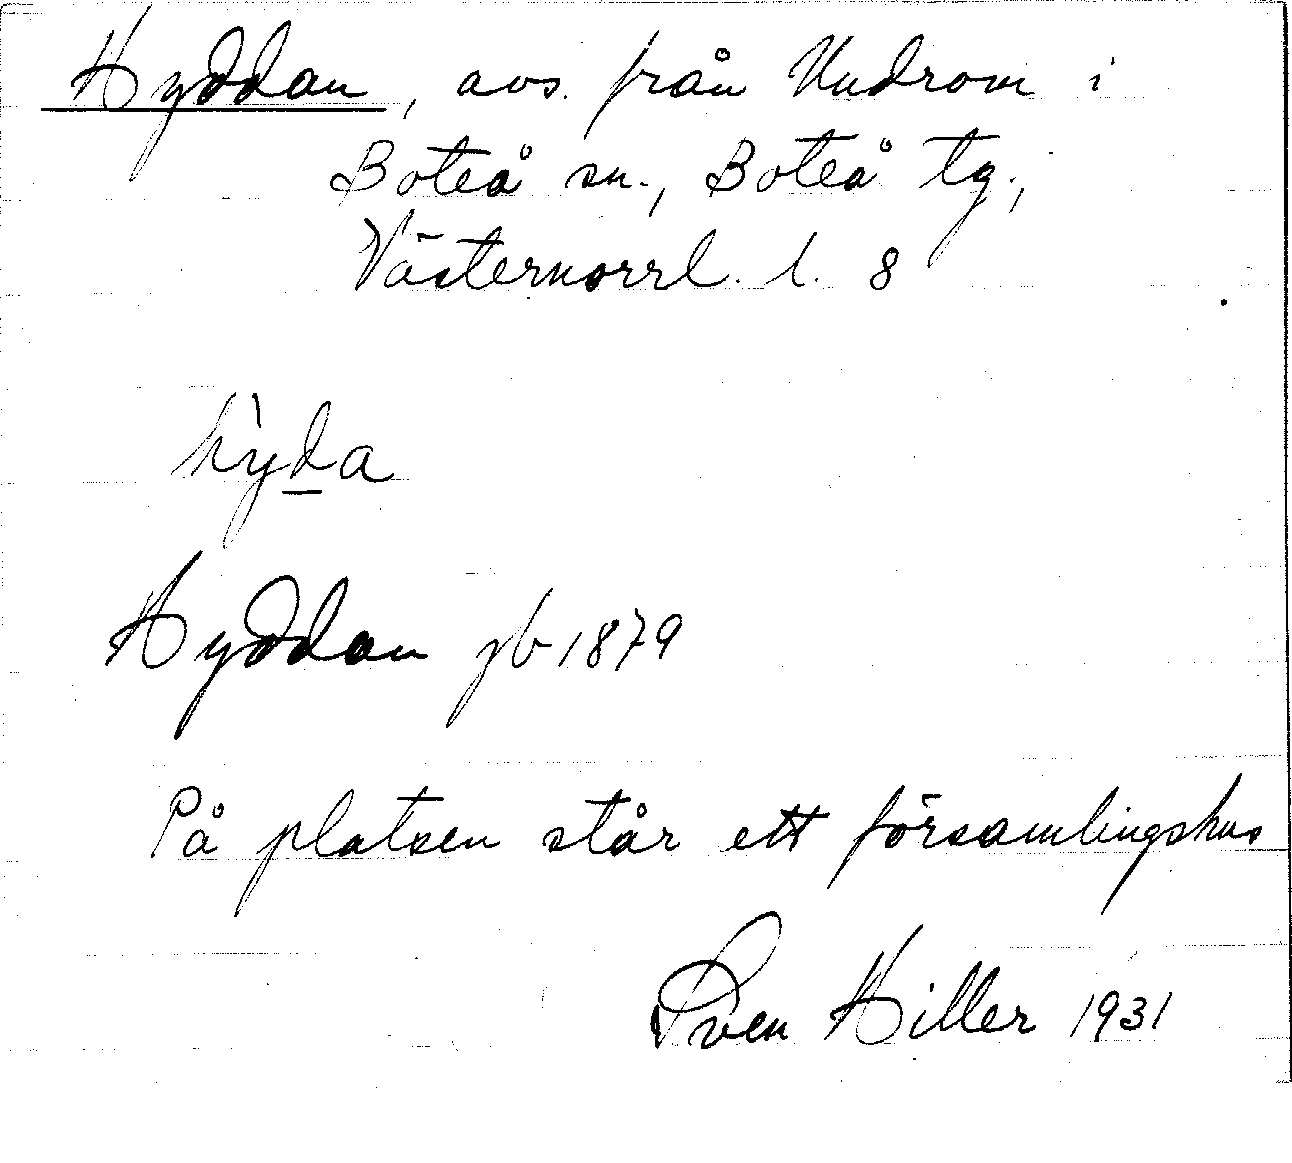 Hyddan, avs. från Undrom i
Boteå sn., Boteå tg.,
Västernorrl. l. 8
hy̍d̲a
Hyddan jb 1879
På platsen står ett församlingshus
Sven Hiller 1931